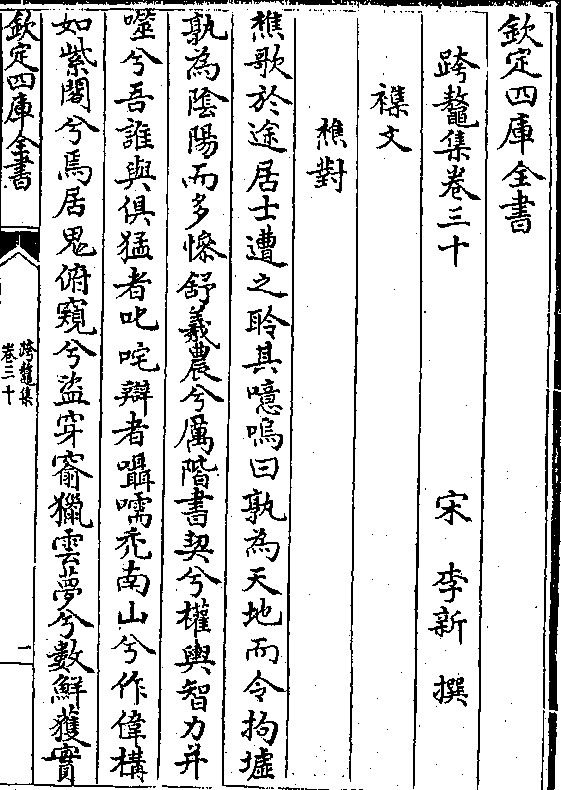 欽定四庫全書
跨鼇集卷三十
宋 李新 撰
襍文
樵對
樵歌於途居士遭之聆其噫嗚曰孰為天地而令拘墟
孰為陰陽而多慘舒羲農兮厲階書契兮權輿智力并
噬兮吾誰與俱猛者叱咤辯者囁嚅禿南山兮作偉構
如紫閣兮焉居鬼俯窺兮盜穿窬獵雲夢兮數鮮獲實
欽定四庫全書
跨鼇集
卷三十
一